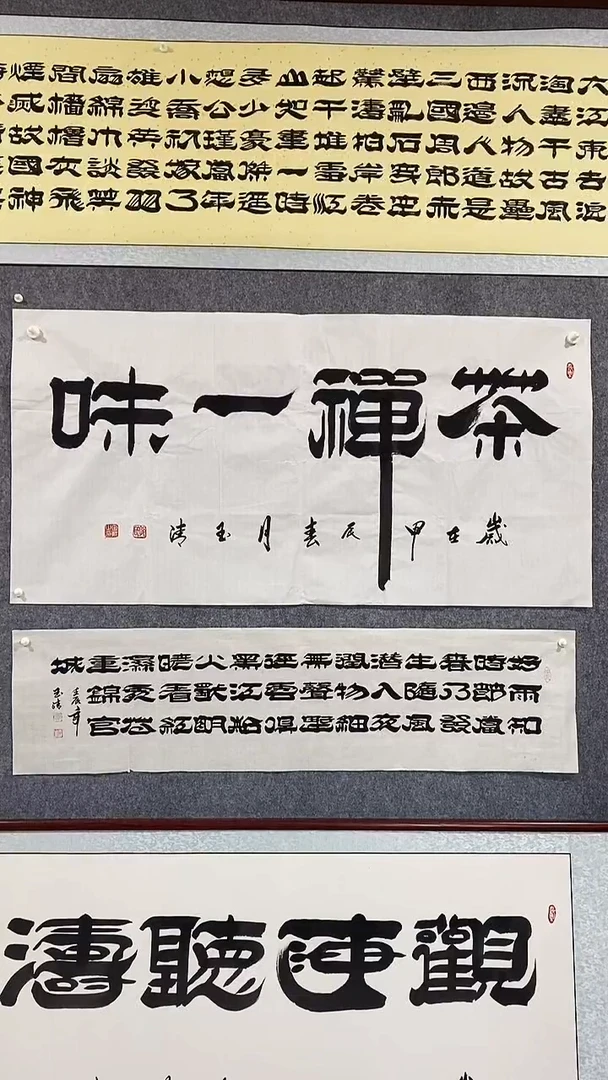 大江東去浪
淘盡千古風
流人物故壘
西邊人道是
三國周郎赤
壁亂石穿空
驚濤拍岸卷
起千堆雪江
山如畫一時
多少豪傑遙
想公瑾當年
小喬初嫁了
雄姿英發羽
扇綸巾談笑
間檣櫓灰飛
煙滅故國神
茶禪一味
歲在甲辰春月玉清
好雨知
時節當
春乃發
生隨風
潛入夜
潤物細
無聲野
徑雲俱
黑江船
火獨明
曉看紅
濕處花
重錦官
城
觀海聽濤